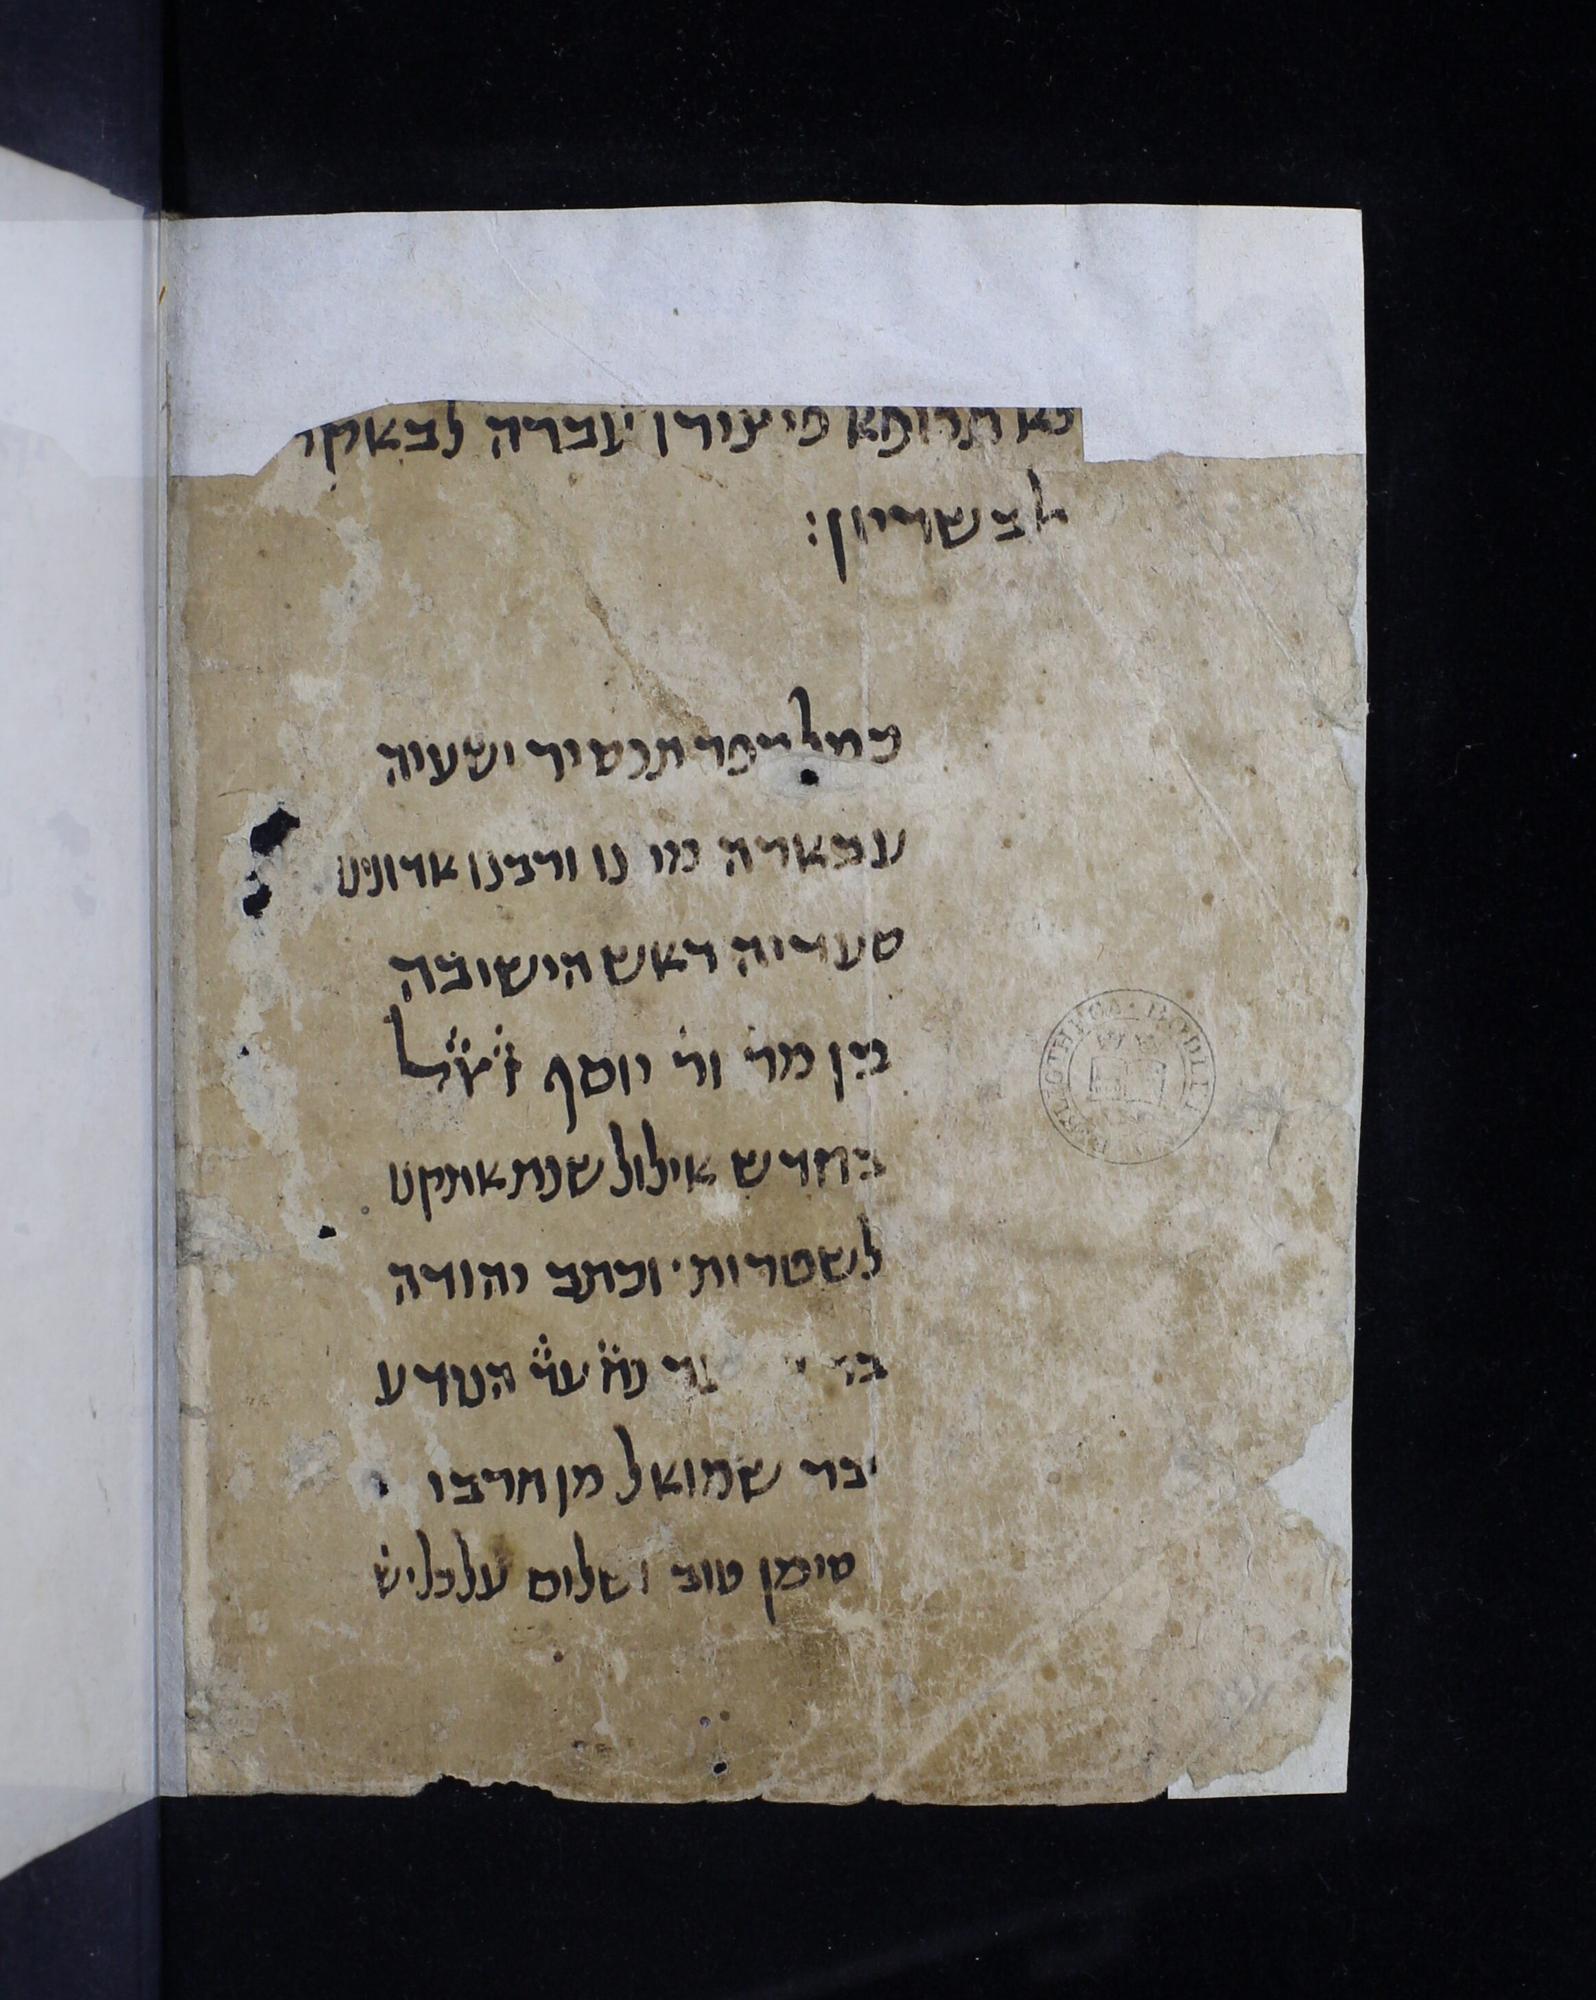 תרופא פי עירן עברה לבאקי
לבשריון:
כמל ספר תפסיר ישעיה
עבארה נו ורבנו אדונינו
סעדיה ראש הישובה
בין מר ור יוסף זצל
בחדש אילול שנת אתקט
לשטרות וכתב יהודה
בר נח עד הנודע
שמואל מן
סימן טוב ושלום על כל יש
BIBLIOTHECA BODLEI